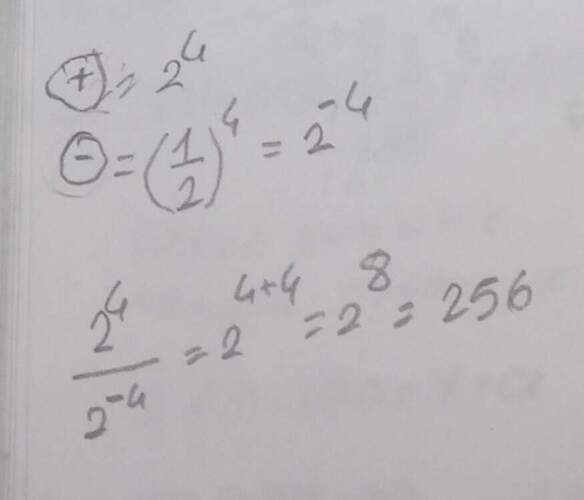 ⊕ = 2^4
⊖ = (1/2)^4 = 2^-4
2^4/2^-4 = 2^4+4 = 2^8 = 256